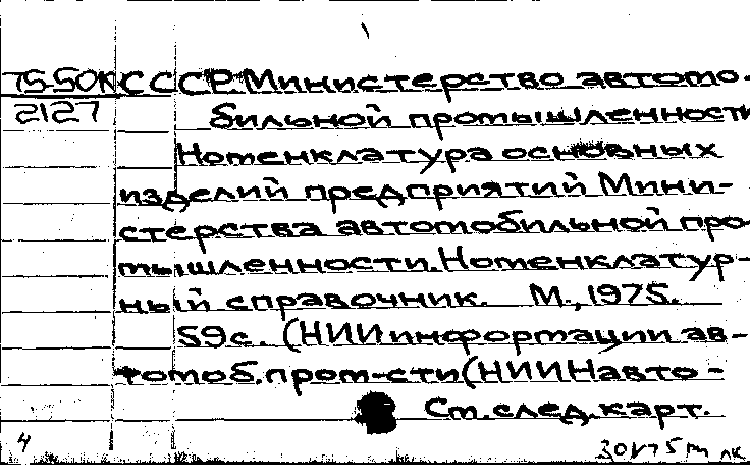 75-50К СССР. Министерство автомо-
2127 бильной промышленности
Номенклатура основных
изделий предприятий Мини-
стерства автомобильной про-
мышленности. Номенклатур-
ный справочник. М., 1975.
59с. (НИИ информации ав-
томоб. пром-сти (НИИНавто-
См. след. карт.
4